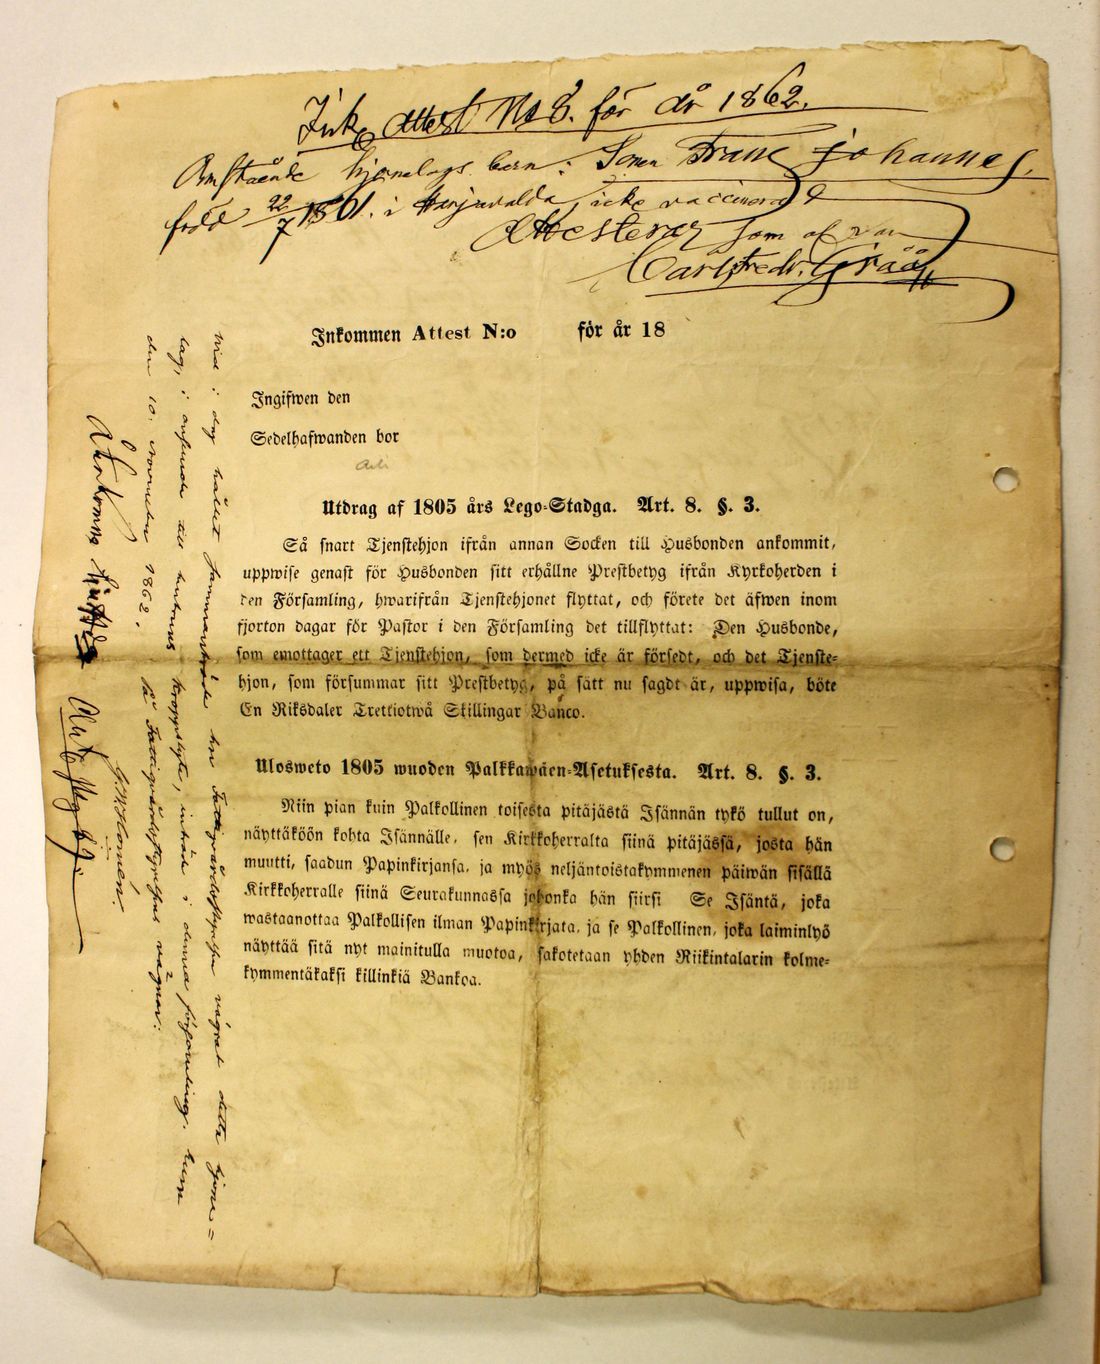 Ink. Attest No 8. för år 1862.
Omstående hjonelags barn: Sonen Frans Johannes,
född 22/7 1861. i Harjavalda, icke vaccinerad
Attesterar som af van
Carl Fredr. Grää
Inkommen Attest N:o för år 18
Ingifwen den
Sedelhafwanden bor
Utdrag af 1805 års Lego-Stadga. Art. 8. §. 3.
Så snart Tjenstehjon ifrån annan Socken till Husbonden ankommit,
uppwise genast för Husbonden sitt erhållne Prestbetyg ifrån Kyrkoherden i
den Församling, hwarifrån Tjenstehjonet flyttat, och förete det äfwen inom
fjorton dagar för Pastor i den Församling det tillflyttat: Den Husbonde,
som emottager ett Tjenstehjon, som dermed icke är försedt, och det Tjenste-
hjon, som försummar sitt Prestbetyg, på sätt nu sagdt är, uppwisa, böte
En Riksdaler Trettiotwå Skillingar Banco.
Ulosweto 1805 wuoden Palkkawäen-Asetuksesta. Art. 8. §. 3.
Niin pian kuin Palkollinen toisesta pitäjästä Isännän tykö tullut on,
näyttäköön kohta Isännälle, sen Kirkkoherralta siinä pitäjässä, josta hän
muutti, saadun Papinkirjansa, ja myös neljäntoistakymmenen päiwän sisällä
Kirkkoherralle siinä Seurakunnassa johonka hän siirsi Se Isäntä, joka
wastaanottaa Palkollisen ilman Papinkirjata, ja se Palkollinen, joka laiminlyö
näyttää sitä nyt mainitulla muotoa, sakotetaan yhden Riikintalarin kolme-
kymmentäkaksi killinkiä Bankoa.
Wid i dag hållet sammanträde har Fattigvårdsstyrelsen vägrat detta hjone-
lag, i anseende till hustruns kroppslyte, inträde i denna församling.
den 10. November 1862. På Fattigvårdsstyrelsens vägnar:
G. W. Homén.